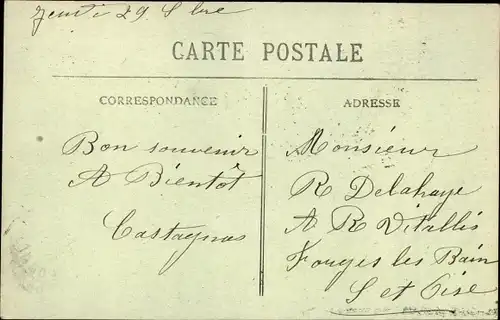 Jeudi 29 S bre
CARTE POSTALE
CORRESPONDANCE
Bon souvenir
A Bientôt
Castagnas
ADRESSE
Monsieur
R Delahaye
A R Vitallis
Forges les Bain
S et Oise